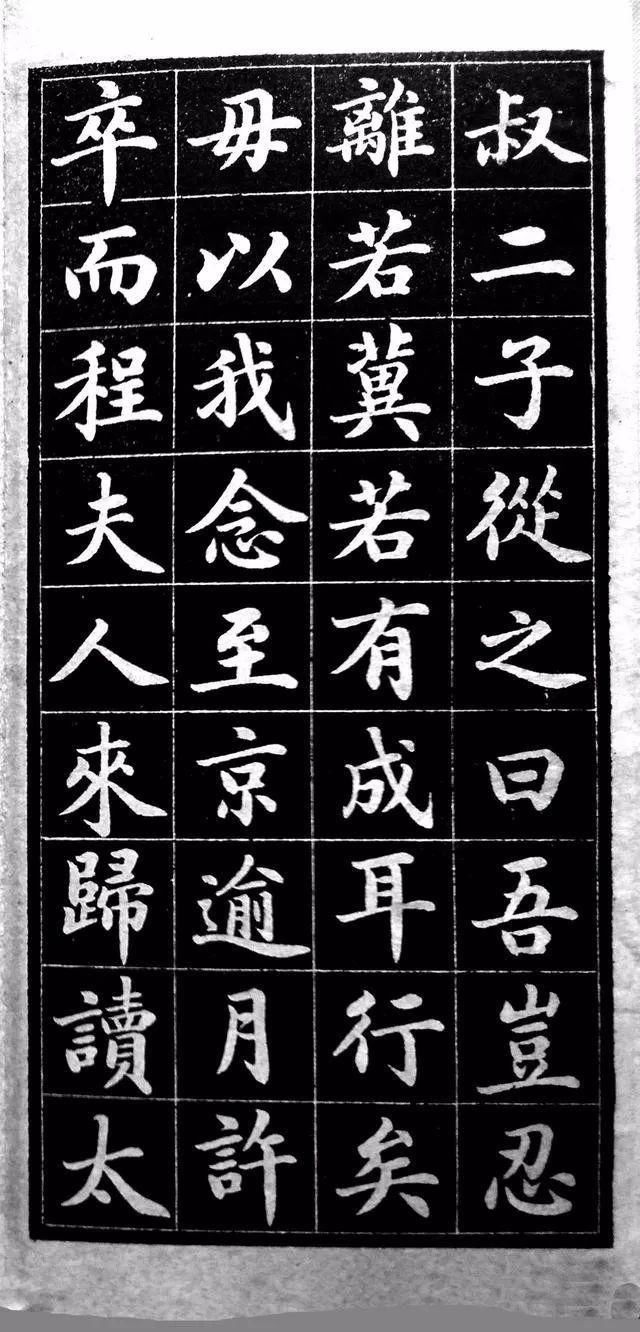 叔二子從之曰吾豈忍
離若冀若有成耳行矣
毋以我念至京逾月許
卒而程夫人來歸讀太